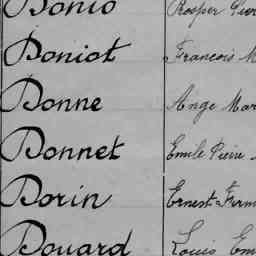 Bonio Prosper Pier
Boniot François M
Bonne Ange Mar
Bonnet Emile Pierre
Borin Ernest Ferm
Bouard Louis Em